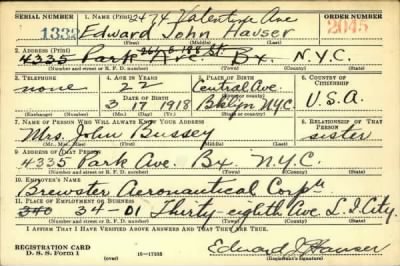 SERIAL NUMBER 1. NAME (Print) 2474 Valentine Ave ORDER NUMBER
1332 Edward John Hauser 2045
(First) (Middle) (Last)
2. ADDRESS (Print)
4335 Park Ave. Bx. N.Y.C.
(Number and street or R. F. D. number) (Town) (County) (State)
3. TELEPHONE 4. AGE IN YEARS 5. PLACE OF BIRTH 6. COUNTRY OF CITIZENSHIP
none 22 Central Ave.
DATE OF BIRTH
3 17 1918 Bklyn N.Y.C. U.S.A.
(Exchange) (Number) (Mo.) (Day) (Yr.) (State or country)
7. NAME OF PERSON WHO WILL ALWAYS KNOW YOUR ADDRESS 8. RELATIONSHIP OF THAT PERSON
Mrs. John Bussey sister
(Mr., Mrs., Miss) (First) (Middle) (Last)
9. ADDRESS OF THAT PERSON
4335 Park Ave. Bx. N.Y.C.
(Number and street or R. F. D. number) (Town) (County) (State)
10. EMPLOYER'S NAME
Brewster Aeronautical Corp
11. PLACE OF EMPLOYMENT OR BUSINESS
340 34-01 Thirty eighth Ave L.I. City.
(Number and street or R. F. D. number) (Town) (County) (State)
I AFFIRM THAT I HAVE VERIFIED ABOVE ANSWERS AND THAT THEY ARE TRUE.
REGISTRATION CARD
D. S. S. Form 1 16-17105 Edward J. Hauser
(Registrant's signature)